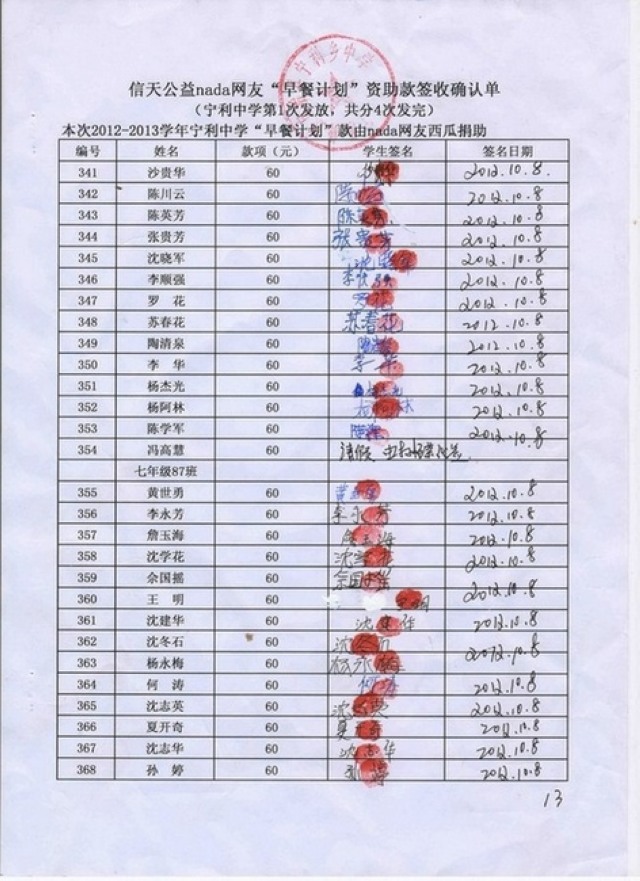 信天公益nada网友“早餐计划”资助款签收确认单
(宁利中学第1次发放，共分4次发完)
本次2012-2013学年宁利中学“早餐计划”款由nada网友西瓜捐助
编号 姓名 款项(元) 学生签名 签名日期
341 沙贵华 60 2012.10.8.
342 陈川云 60 2012.10.8
343 陈英芳 60 陈 2012.10.8
344 张贵芳 60 张贵芳 2012.10.8
345 沈晓军 60 沈 2012.10.8
346 李顺强 60 李 2012.10.8
347 罗花 60 罗 2012.10.8
348 苏春花 60 苏春花 2012.10.8
349 陶清泉 60 2012.10.8
350 李华 60 李华 2012.10.8
351 杨杰光 60 2012.10.8
352 杨阿林 60 2012.10.8
353 陈学军 60 2012.10.8
354 冯高慧 60 请假
七年级87班
355 黄世勇 60 黄 2012.10.8
356 李永芳 60 李永芳 2012.10.8
357 詹玉海 60 詹玉海 2012.10.8
358 沈学花 60 沈学花 2012.10.8
359 余国摇 60 余国 2012.10.8
360 王明 60 王明
361 沈建华 60 沈建华 2012.10.8
362 沈冬石 60 沈 2012.10.8
363 杨永梅 60 杨永
364 何涛 60 何涛 2012.10.8
365 沈志英 60 沈 2012.10.8
366 夏开奇 60 夏开奇 2012.10.8
367 沈志华 60 沈志华 2012.10.8
368 孙婷 60 孙婷 2012.10.8
13